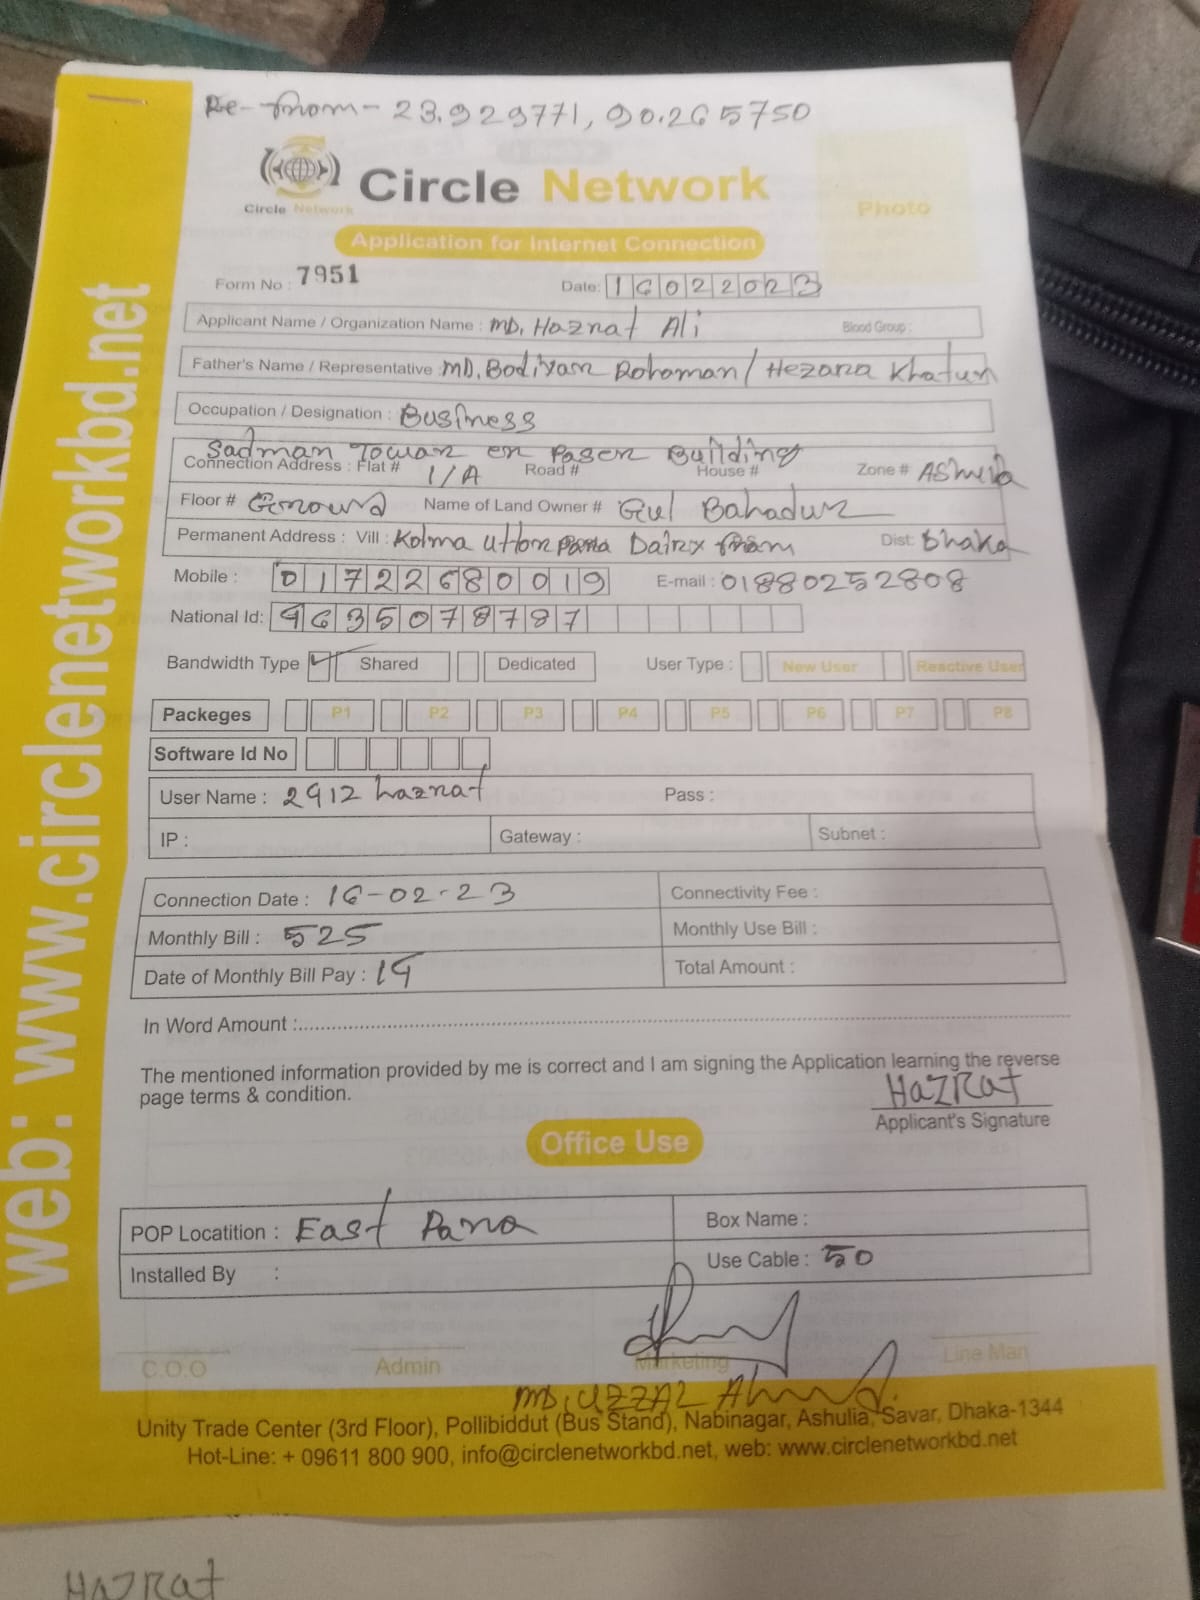 Re-from- 23.929771, 90.265750
Circle Network
Circle Network
Photo
Application for Internet Connection
Form No : 7951 Date: 16022023
Applicant Name / Organization Name : MD. Hazrat Ali Blood Group :
Father's Name / Representative : MD. Bodiyar Rohoman / Hezara Khatun
Occupation / Designation : Business
Sadman Towar er Paser Building
Connection Address : Flat # 1/A Road # House # Zone # Ashulia
Floor # Ground Name of Land Owner # Gul Bahadur
Permanent Address : Vill : Kolma Uttor Para Dairy Dist: Dhaka
Mobile : 01722680019 E-mail : 01880252808
National Id: 9635078787
Bandwidth Type Shared Dedicated User Type : New User Reactive User
Packeges P1 P2 P3 P4 P5 P6 P7 P8
Software Id No
User Name : 2912 hazrat Pass :
IP : Gateway : Subnet :
Connection Date : 16-02-23 Connectivity Fee :
Monthly Bill : 525 Monthly Use Bill :
Date of Monthly Bill Pay : 19 Total Amount :
In Word Amount :
The mentioned information provided by me is correct and I am signing the Application learning the reverse
page terms & condition.
HazRat
Applicant's Signature
Office Use
POP Locatition : East Para Box Name :
Installed By : Use Cable : 50
C.O.O Admin Marketing Line Man
MD. UZZAL Ahmed.
Unity Trade Center (3rd Floor), Pollibiddut (Bus Stand), Nabinagar, Ashulia, Savar, Dhaka-1344
Hot-Line: + 09611 800 900, info@circlenetworkbd.net, web: www.circlenetworkbd.net
web: www.circlenetworkbd.net
HazRat